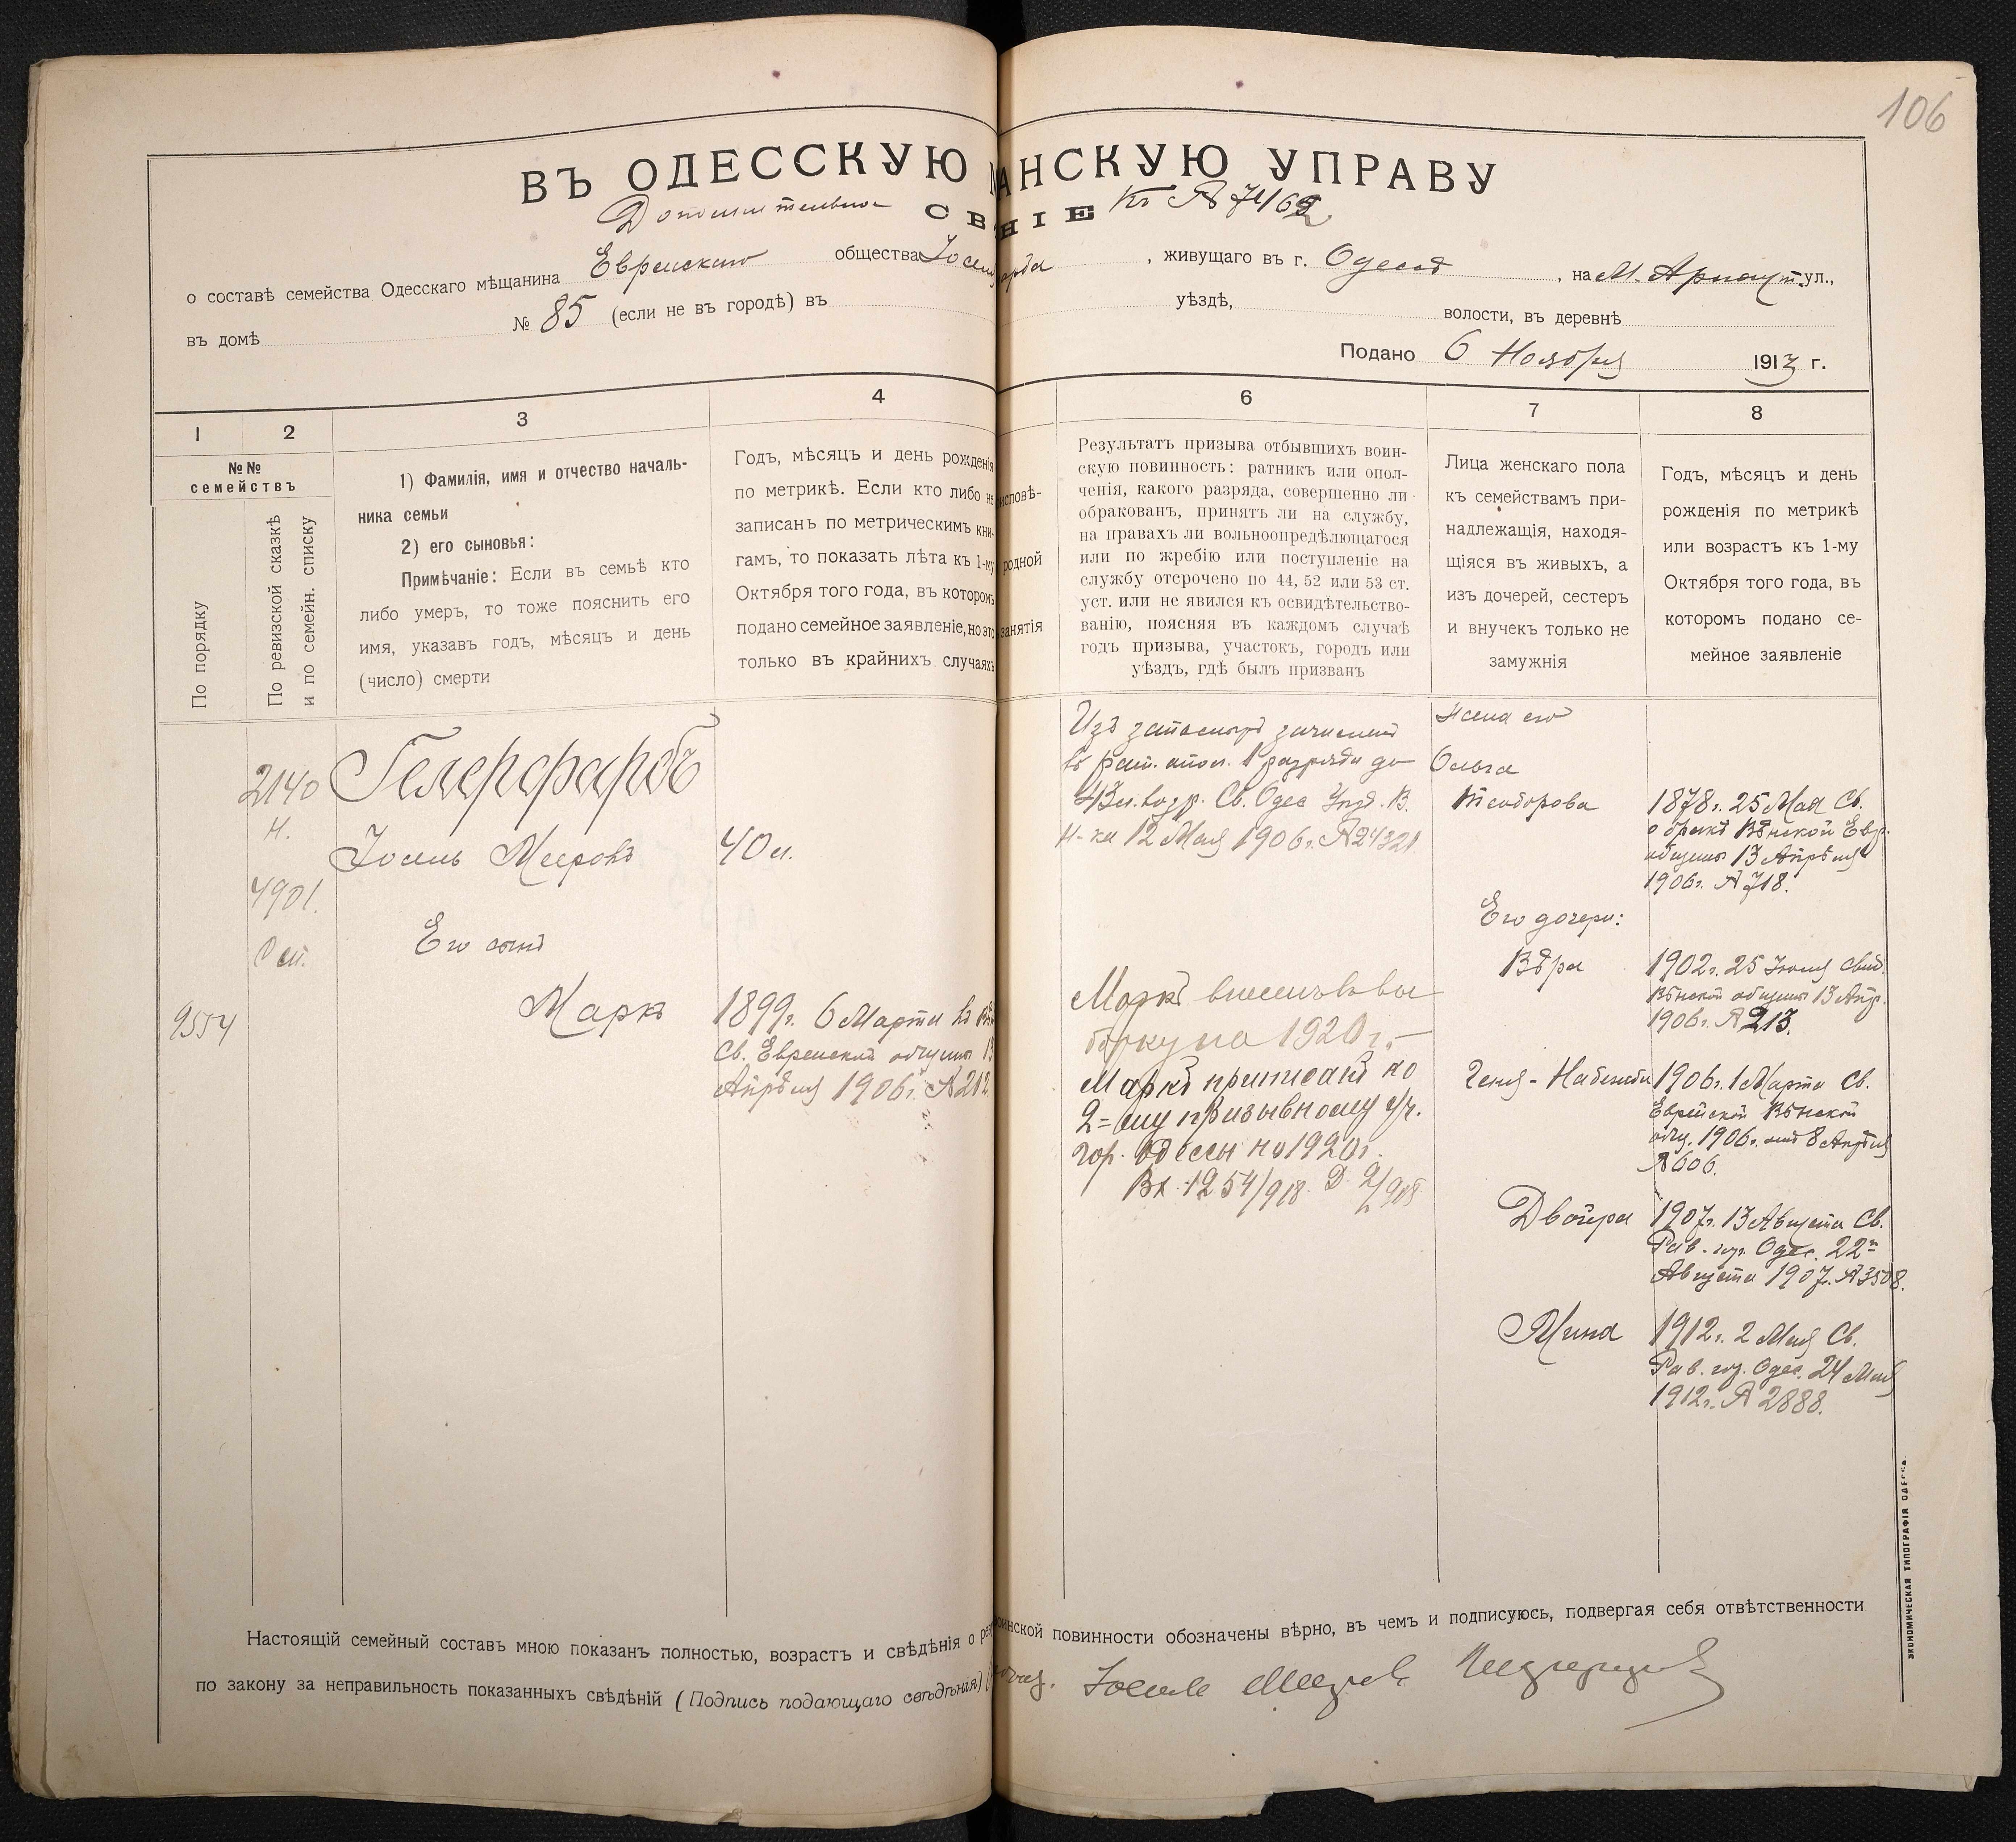 106
ВЪ ОДЕССКУЮ АНСКУЮ УПРАВУ
Дополнительное СВ НІЕ Къ № 7416
о составѣ семейства Одесскаго мѣщанина Еврейскаго общества , живущаго въ г. Одессѣ , на М. Арнаут. ул.,
въ домѣ № 85 (если не въ городѣ) въ уѣздѣ, волости, въ деревнѣ
Подано 6 Ноября 1913 г.
1
2
3
4
6
7
8
№№
семействъ
По порядку
По ревизской сказкѣ
и по семейн. списку
1) Фамилія, имя и отчество началь-
ника семьи
2) его сыновья:
Примѣчаніе: Если въ семьѣ кто
либо умеръ, то тоже пояснить его
имя, указавъ годъ, мѣсяцъ и день
(число) смерти
Годъ, мѣсяцъ и день рожденія
по метрикѣ. Если кто либо не
записанъ по метрическимъ кни-
гамъ, то показать лѣта къ 1-му
Октября того года, въ которомъ
подано семейное заявленіе, но это
только въ крайнихъ случаяхъ
исповѣ-
родной
занятія
Результатъ призыва отбывшихъ воин-
скую повинность: ратникъ или опол-
ченія, какого разряда, совершенно ли
обракованъ, принятъ ли на службу,
на правахъ ли вольноопредѣляющагося
или по жребію или поступленіе на
службу отсрочено по 44, 52 или 53 ст.
уст. или не явился къ освидѣтельство-
ванію, поясняя въ каждомъ случаѣ
годъ призыва, участокъ, городъ или
уѣздъ, гдѣ былъ призванъ
Лица женскаго пола
къ семействамъ при-
надлежащія, находя-
щіяся въ живыхъ, а
изъ дочерей, сестеръ
и внучекъ только не
замужнія
Годъ, мѣсяцъ и день
рожденія по метрикѣ
или возрастъ къ 1-му
Октября того года, въ
которомъ подано се-
мейное заявленіе
2140
н.
4901.
9554
Гелерфарбъ
Іосель Мееровъ
40 л.
Его сынъ
Маркъ
1899 г. 6 Марта въ
Св. Еврейской общины 13
Апрѣля 1906 г. № 212.
Изъ запаснаго зачисленъ
въ рат. опол. 1 разряда до
43 л. возр. Св. Одес. Уѣзд. В.
Н-ка 12 Мая 1906 г. № 24321
Маркъ внесенъ въ вы
борку на 1920 г.
Маркъ приписанъ ко
2=ому призывному уч.
гор. Одессы на 1920 г.
Вх. 1254/918. Д. 2/918
Жена его
Ольга
Теодорова
1878 г. 25 Мая Св.
о бракѣ Вѣнской Евр.
общины 13 Апрѣля
1906 г. № 718.
Его дочери:
Вѣра
1902 г. 25 Іюля Свид.
Вѣнской общины 13 Апр.
1906 г. № 213.
Геня-
1906 г. 1 Марта Св.
Еврейской Вѣнской
общ. 1906 г. отъ 8 Апрѣля
№ 606.
Двойра
1907 г. 13 Августа Св.
Рав. гор. Одес. 22го
Августа 1907 г. № 3508.
Мина
1912 г. 2 Мая Св.
Рав. гор. Одес. 24 Мая
1912 г. № 2888.
Настоящій семейный составъ мною показанъ полностью, возрастъ и свѣдѣнія о рез воинской повинности обозначены вѣрно, въ чемъ и подписуюсь, подвергая себя отвѣтственности
по закону за неправильность показанныхъ свѣдѣній (Подпись подающаго свѣдѣнія)
ЭКОНОМИЧЕСКАЯ ТИПОГРАФІЯ ОДЕССА.